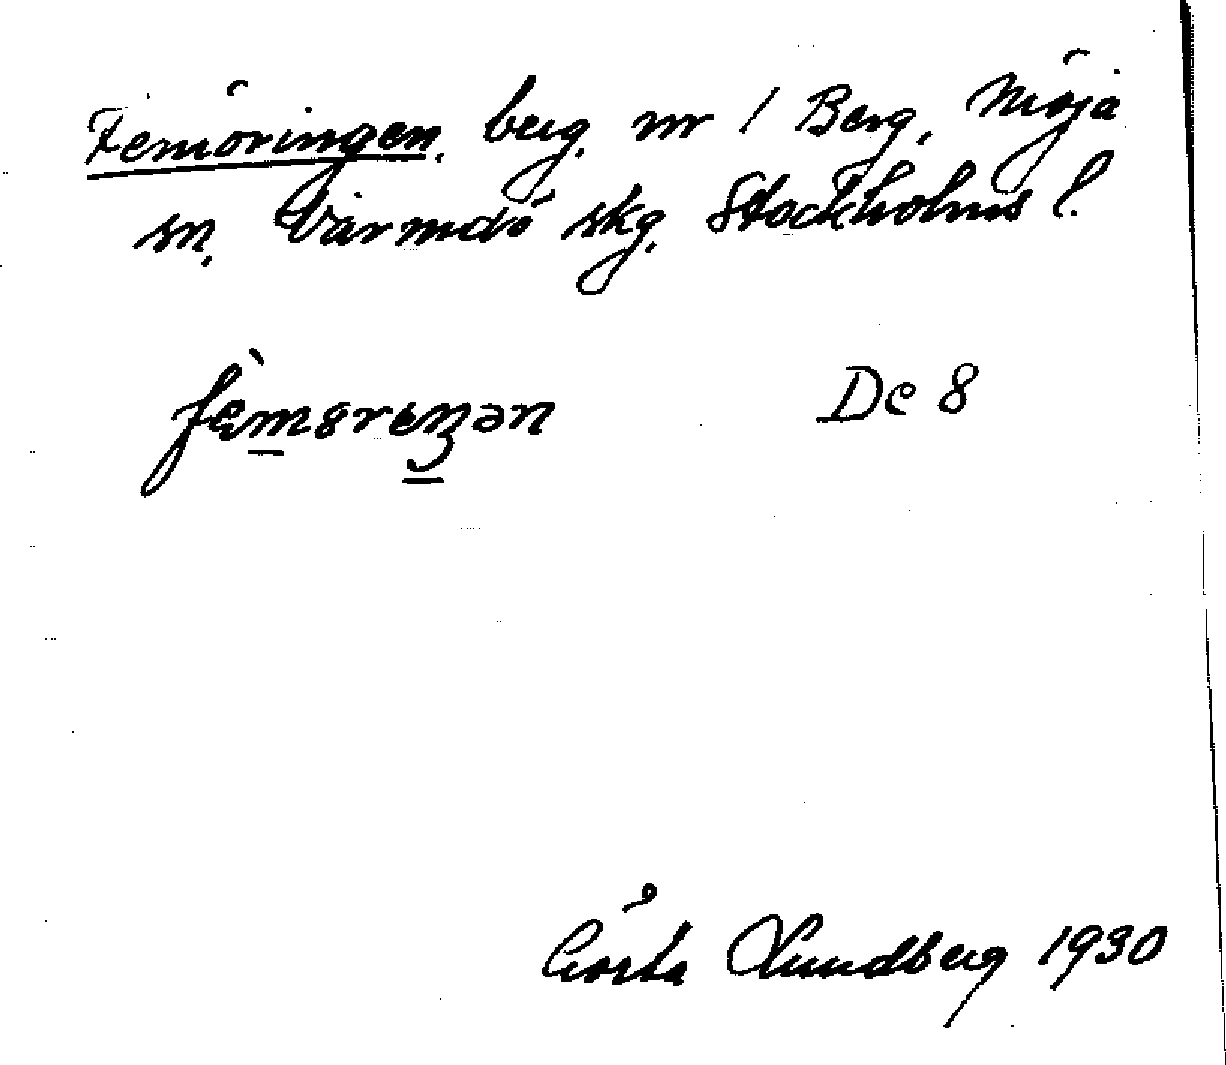 Femöringen, berg, nr 1 Berg, Möja
sn, Värmdö skg, Stockholms l.
fèmöreŋən De 8
Gösta Lundberg 1930